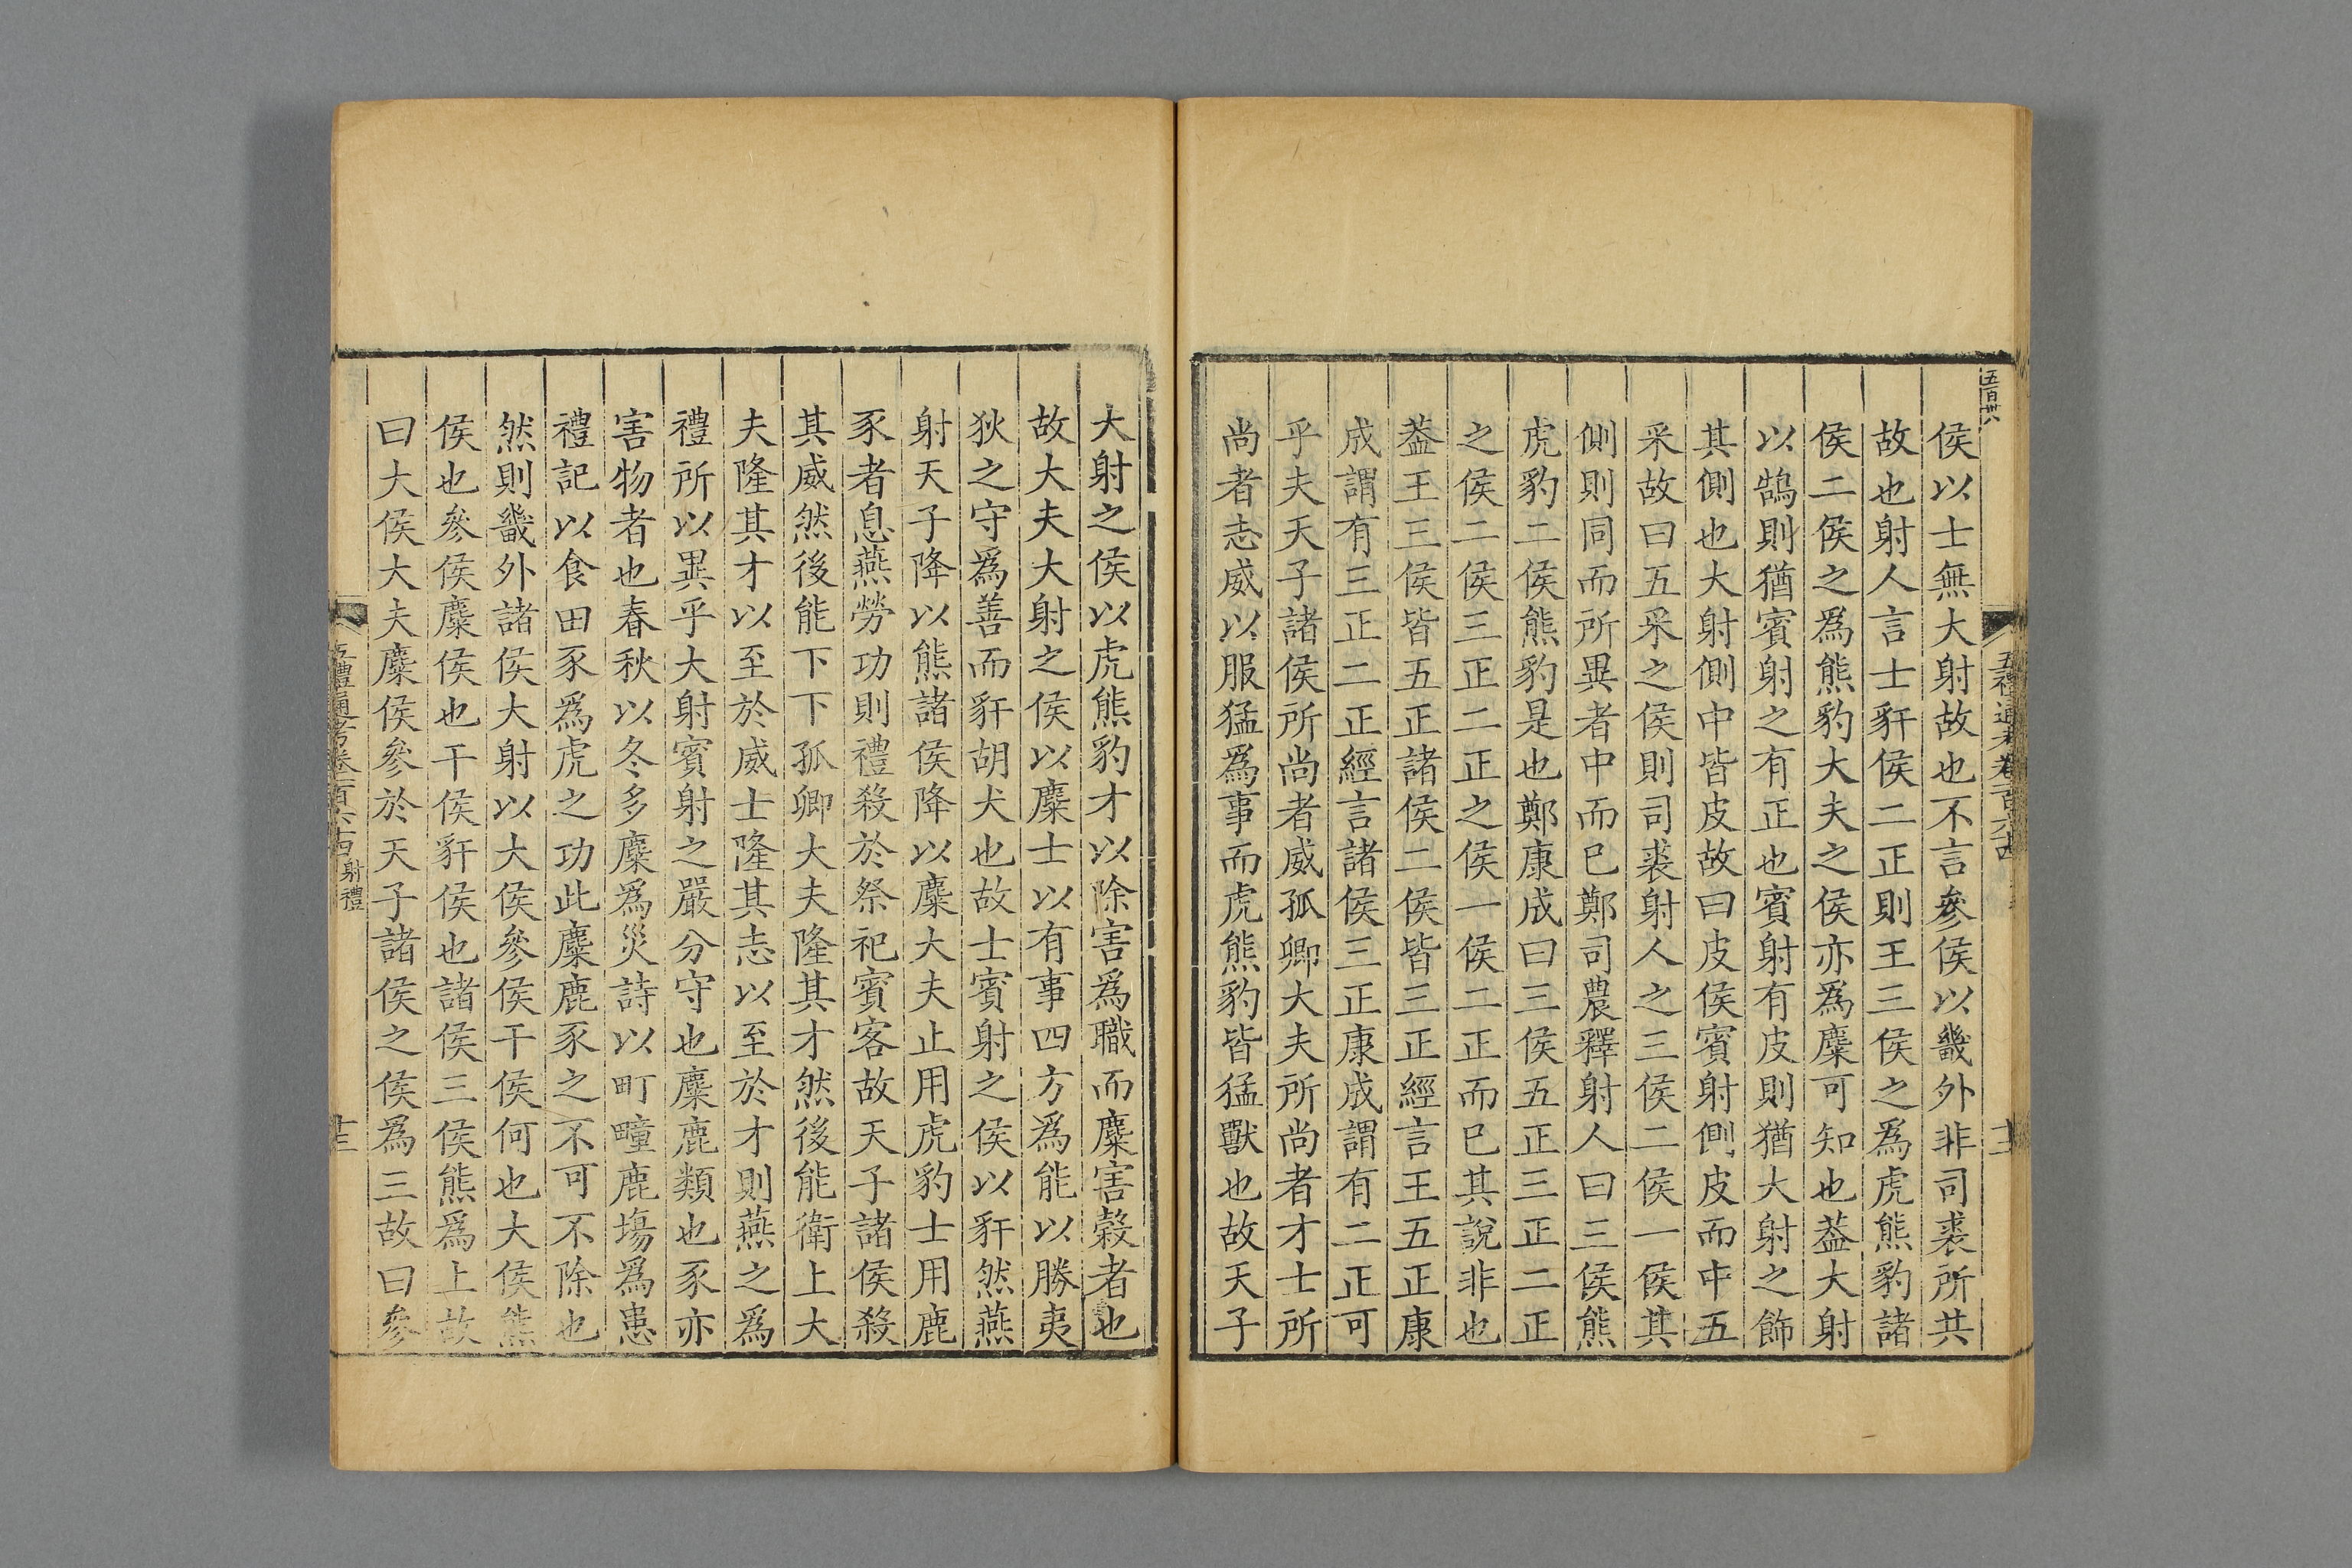 五百卅八
五禮通考卷百六十四
十二
侯以士無大射故也不言參侯以畿外非司裘所共
故也射人言士豻侯二正則王三侯之爲虎熊豹諸
侯二侯之爲熊豹大夫之侯亦爲麋可知也葢大射
以鵠則猶賓射之有正也賓射有皮則猶大射之飾
其側也大射側中皆皮故曰皮侯賓射側皮而中五
采故曰五采之侯則司裘射人之三侯二侯一侯其
側則同而所異者中而已鄭司農釋射人曰三侯熊
虎豹二侯熊豹是也鄭康成曰三侯五正三正二正
之侯二侯三正二正之侯一侯二正而已其說非也
葢王三侯皆五正諸侯二侯皆三正經言王五正康
成謂有三正二正經言諸侯三正康成謂有二正可
乎夫天子諸侯所尚者威孤卿大夫所尚者才士所
尚者志威以服猛爲事而虎熊豹皆猛獸也故天子
大射之侯以虎熊豹才以除害爲職而麋害榖者也
故大夫大射之侯以麋士以有事四方爲能以勝夷
狄之守爲善而豻胡犬也故士賓射之侯以豻然燕
射天子降以熊諸侯降以麋大夫止用虎豹士用鹿
豕者息燕勞功則禮殺於祭祀賓客故天子諸侯殺
其威然後能下下孤卿大夫隆其才然後能衛上大
夫隆其才以至於威士隆其志以至於才則燕之爲
禮所以異乎大射賓射之嚴分守也麋鹿類也豕亦
害物者也春秋以冬多麋爲災詩以町疃鹿塲爲患
禮記以食田豕爲虎之功此麋鹿豕之不可不除也
然則畿外諸侯大射以大侯參侯干侯何也大侯熊
侯也參侯麋侯也干侯豻侯也諸侯三侯熊爲上故
曰大侯大夫麋侯參於天子諸侯之侯爲三故曰參
五禮通考卷一百六十四 射禮
十三